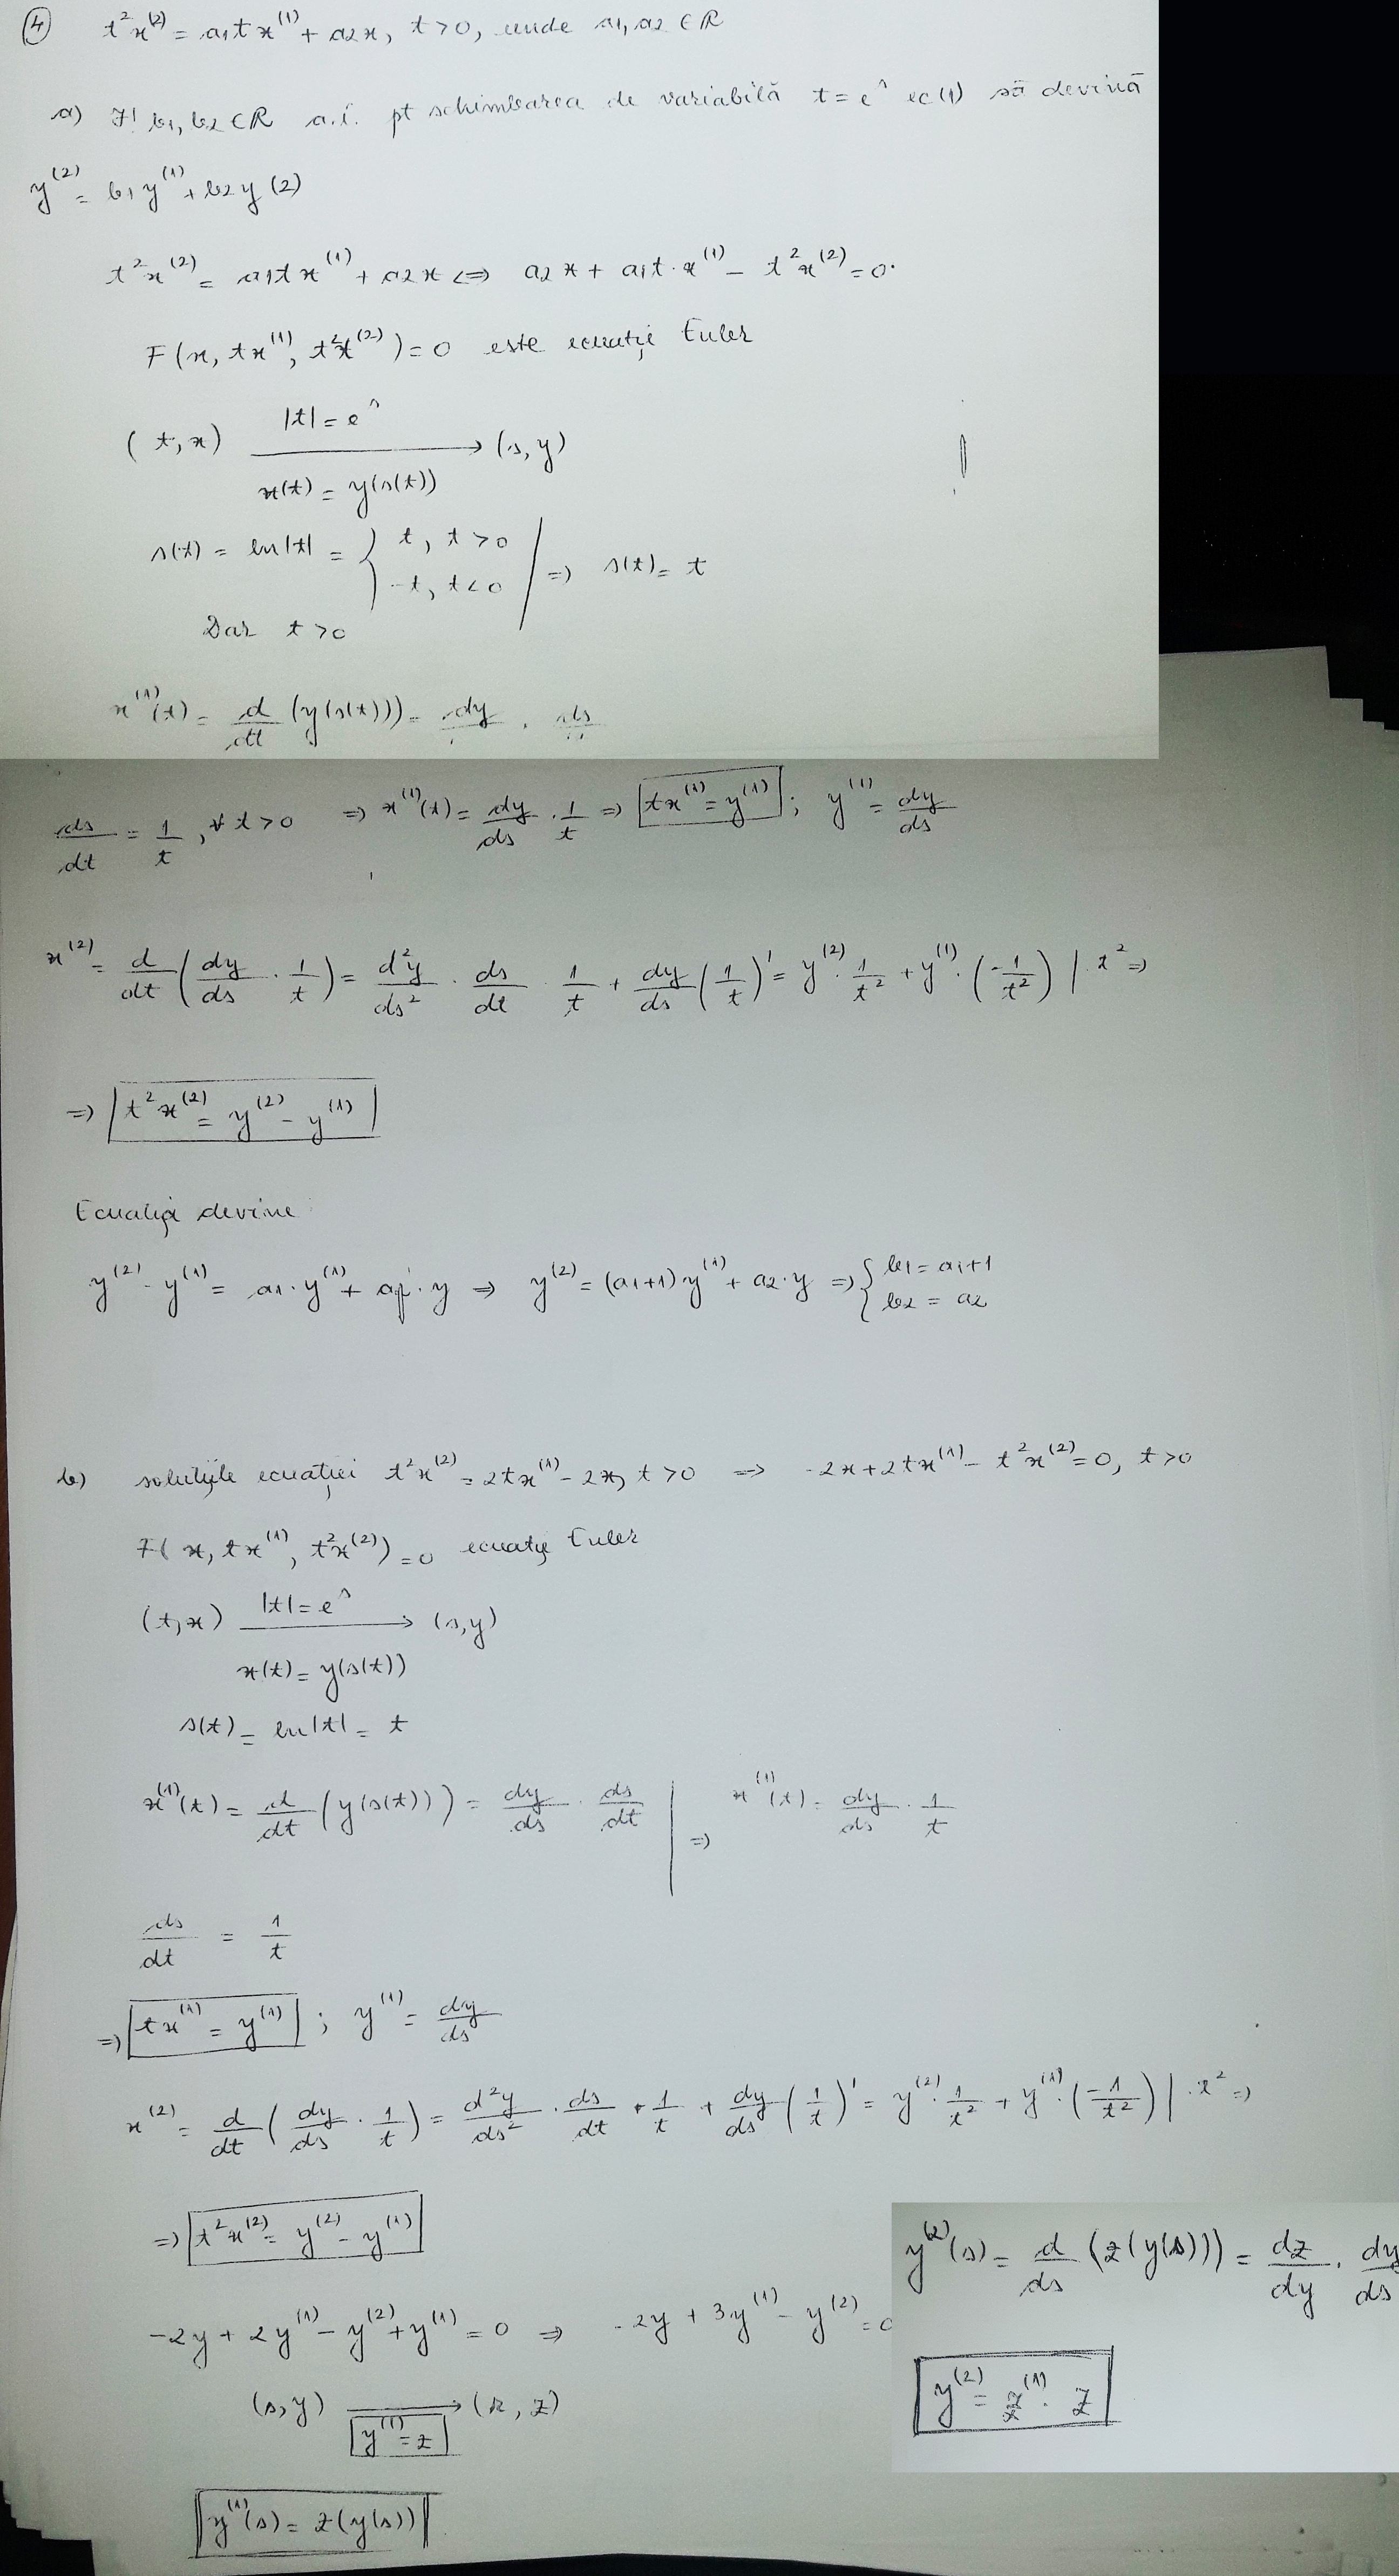 ④ t²x⁽²⁾ = a₁tx⁽¹⁾ + a₂x, t > 0, unde a₁, a₂ ∈ R
a) ∃! b₁, b₂ ∈ R a.î. pt schimbarea de variabilă t = eˢ ec (1) să devină
y⁽²⁾ = b₁y⁽¹⁾ + b₂y (2)
t²x⁽²⁾ = a₁tx⁽¹⁾ + a₂x <=> a₂x + a₁t·x⁽¹⁾ - t²x⁽²⁾ = 0.
F(x, tx⁽¹⁾, t²x⁽²⁾) = 0 este ecuație Euler
(t, x) |t| = eˢ → (s, y)
x(t) = y(s(t))
s(t) = ln|t| = { t, t > 0
-t, t < 0 | => s(t) = t
Dar t > 0
x⁽¹⁾(t) = d/dt (y(s(t))) = dy . ds
ds/dt = 1/t, ∀ t > 0 => x⁽¹⁾(t) = dy/ds · 1/t => tx⁽¹⁾ = y⁽¹⁾ ; y⁽¹⁾ = dy/ds
x⁽²⁾ = d/dt (dy/ds · 1/t) = d²y/ds² · ds/dt · 1/t + dy/ds (1/t)' = y⁽²⁾· 1/t² + y⁽¹⁾· (-1/t²) | ·t² =>
=> t²x⁽²⁾ = y⁽²⁾ - y⁽¹⁾
Ecuația devine
y⁽²⁾ - y⁽¹⁾ = a₁·y⁽¹⁾ + a₂·y => y⁽²⁾ = (a₁+1)y⁽¹⁾ + a₂·y => { b₁ = a₁+1
b₂ = a₂
b) soluțiile ecuației t²x⁽²⁾ = 2tx⁽¹⁾ - 2x, t > 0 => -2x + 2tx⁽¹⁾ - t²x⁽²⁾ = 0, t > 0
F(x, tx⁽¹⁾, t²x⁽²⁾) = 0 ecuație Euler
(t, x) |t| = eˢ → (s, y)
x(t) = y(s(t))
s(t) = ln|t| = t
x⁽¹⁾(t) = d/dt (y(s(t))) = dy/ds · ds/dt | => x⁽¹⁾(t) = dy/ds · 1/t
ds/dt = 1/t
=> tx⁽¹⁾ = y⁽¹⁾ ; y⁽¹⁾ = dy/ds
x⁽²⁾ = d/dt (dy/ds · 1/t) = d²y/ds² · ds/dt · 1/t + dy/ds (1/t)' = y⁽²⁾· 1/t² + y⁽¹⁾· (-1/t²) | ·t² =>
=> t²x⁽²⁾ = y⁽²⁾ - y⁽¹⁾
-2y + 2y⁽¹⁾ - y⁽²⁾ + y⁽¹⁾ = 0 => -2y + 3y⁽¹⁾ - y⁽²⁾ = 0
(s, y) y⁽¹⁾ = z → (r, z)
y⁽¹⁾(s) = z(y(s))
y⁽²⁾(s) = d/ds (z(y(s))) = dz/dy · dy/ds
y⁽²⁾ = z⁽¹⁾· z